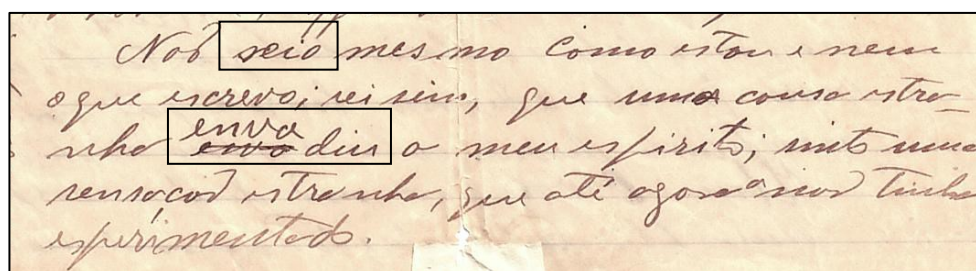 Não seiô mesmo como estou e nem
o que escrevo; sei sim, que uma cousa estra-
nha enva
evvo diu o meu espirito; sinto uma
sensação estranha, que até agora não tinha
esperimentado.